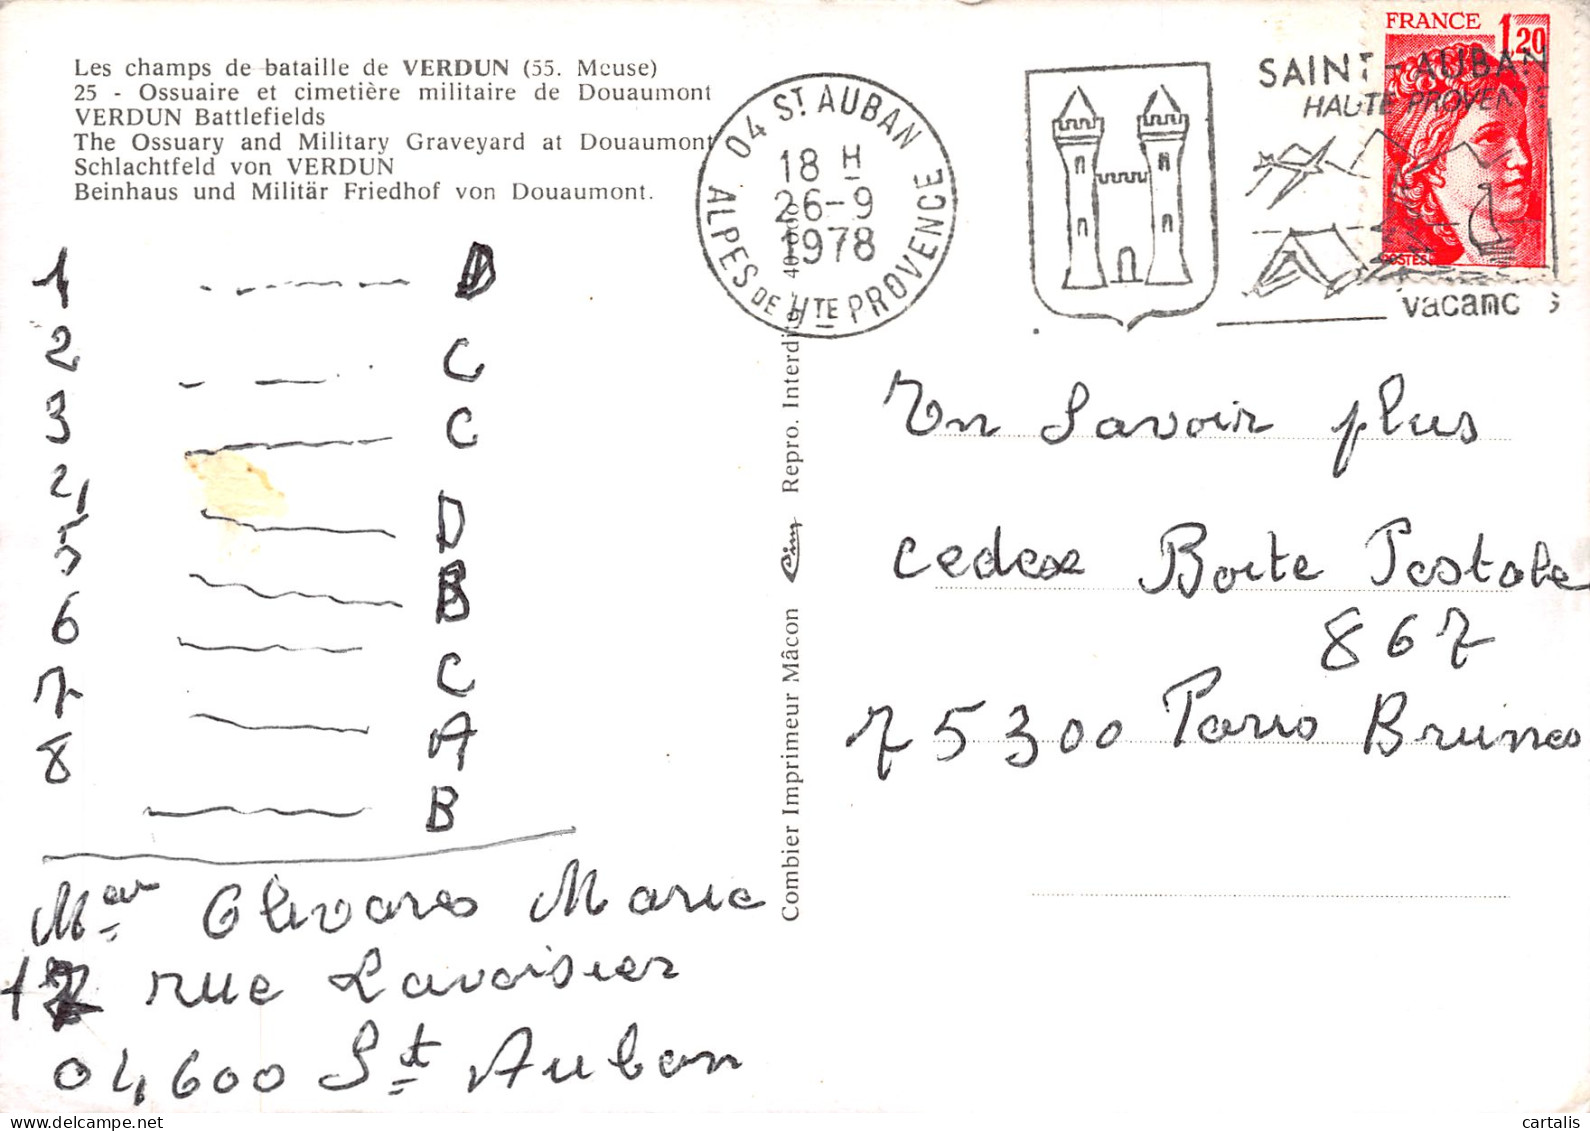 Les champs de bataille de VERDUN (55. Meuse)
25 - Ossuaire et cimetière militaire de Douaumont
VERDUN Battlefields
The Ossuary and Military Graveyard at Douaumont
Schlachtfeld von VERDUN
Beinhaus und Militär Friedhof von Douaumont.
04 ST AUBAN
18 H
26-9
1978
ALPES DE HTE PROVENCE
SAINT-AUBAN
HAUTE PROVENCE
vacances
FRANCE 1,20
POSTES
1 D
2 C
3 C
4 D
5 B
6 C
7 A
8 B
Olivares Marie
17 rue Lavoisier
04600 St Auban
Combier Imprimeur Mâcon Cim Repro. Interdite
En Savoir plus
cedex Boite Postale
867
75300 Paris Brunes
cartalis